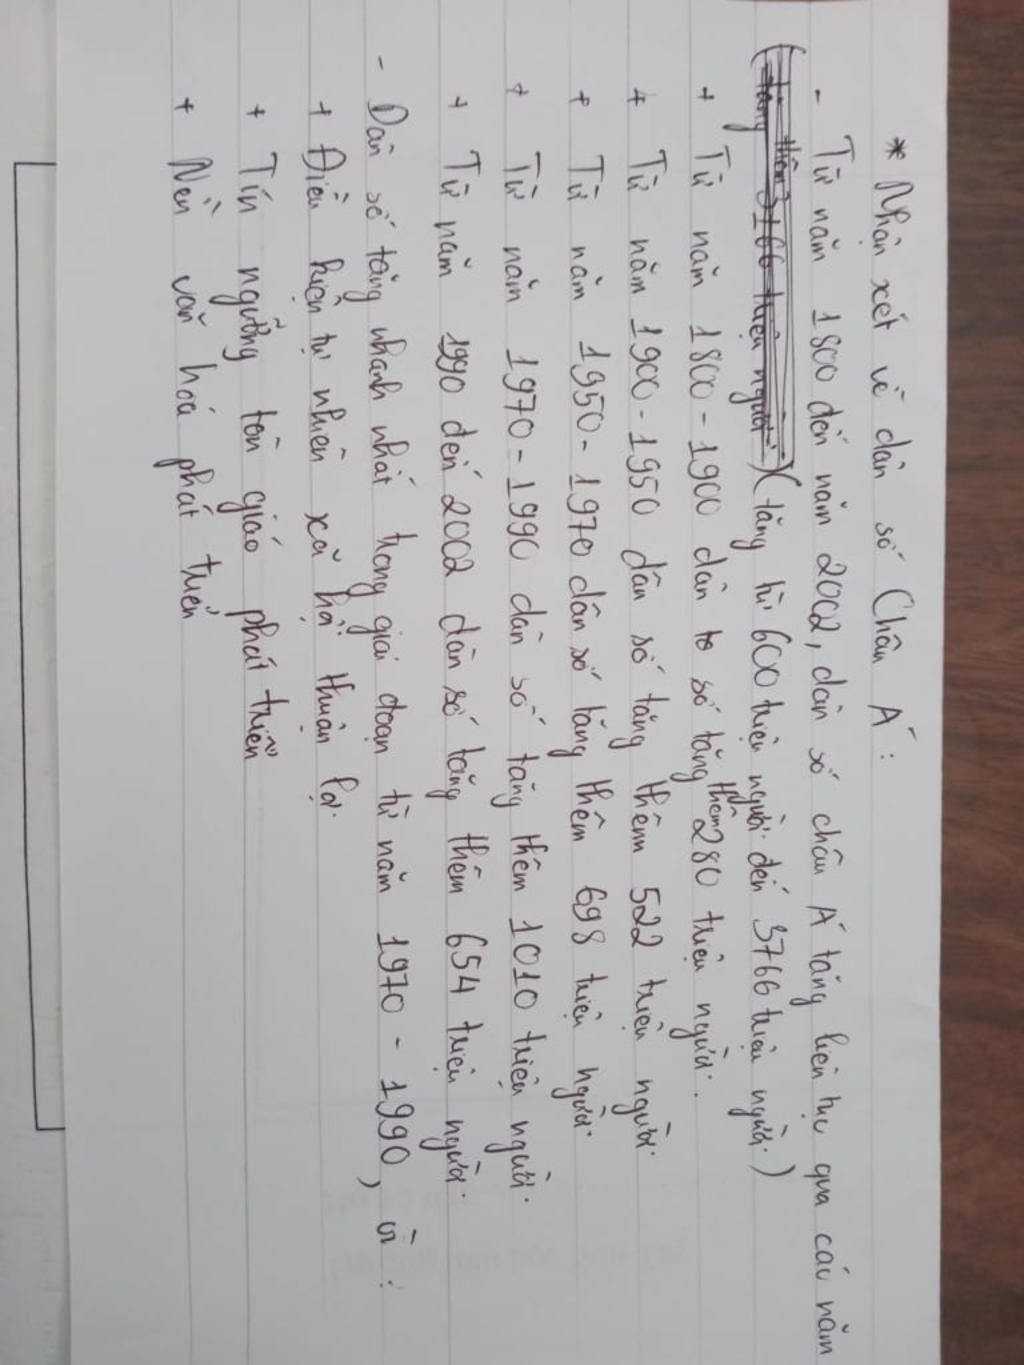 * Nhận xét về dân số Châu Á :
- Từ năm 1800 đến năm 2002, dân số châu Á tăng liên tục qua các năm
(tăng thêm 3166 triệu người) (tăng từ 600 triệu người đến 3766 triệu người.)
+ Từ năm 1800 - 1900 dân to số tăng thêm 280 triệu người.
+ Từ năm 1900 - 1950 dân số tăng thêm 522 triệu người.
+ Từ năm 1950 - 1970 dân số tăng thêm 698 triệu người.
+ Từ năm 1970 - 1990 dân số tăng thêm 1010 triệu người.
+ Từ năm 1990 đến 2002 dân số tăng thêm 654 triệu người.
- Dân số tăng nhanh nhất trong giai đoạn từ năm 1970 - 1990, vì :
+ Điều kiện tự nhiên xã hội thuận lợi.
+ Tín ngưỡng tôn giáo phát triển
+ Nền văn hoá phát triển